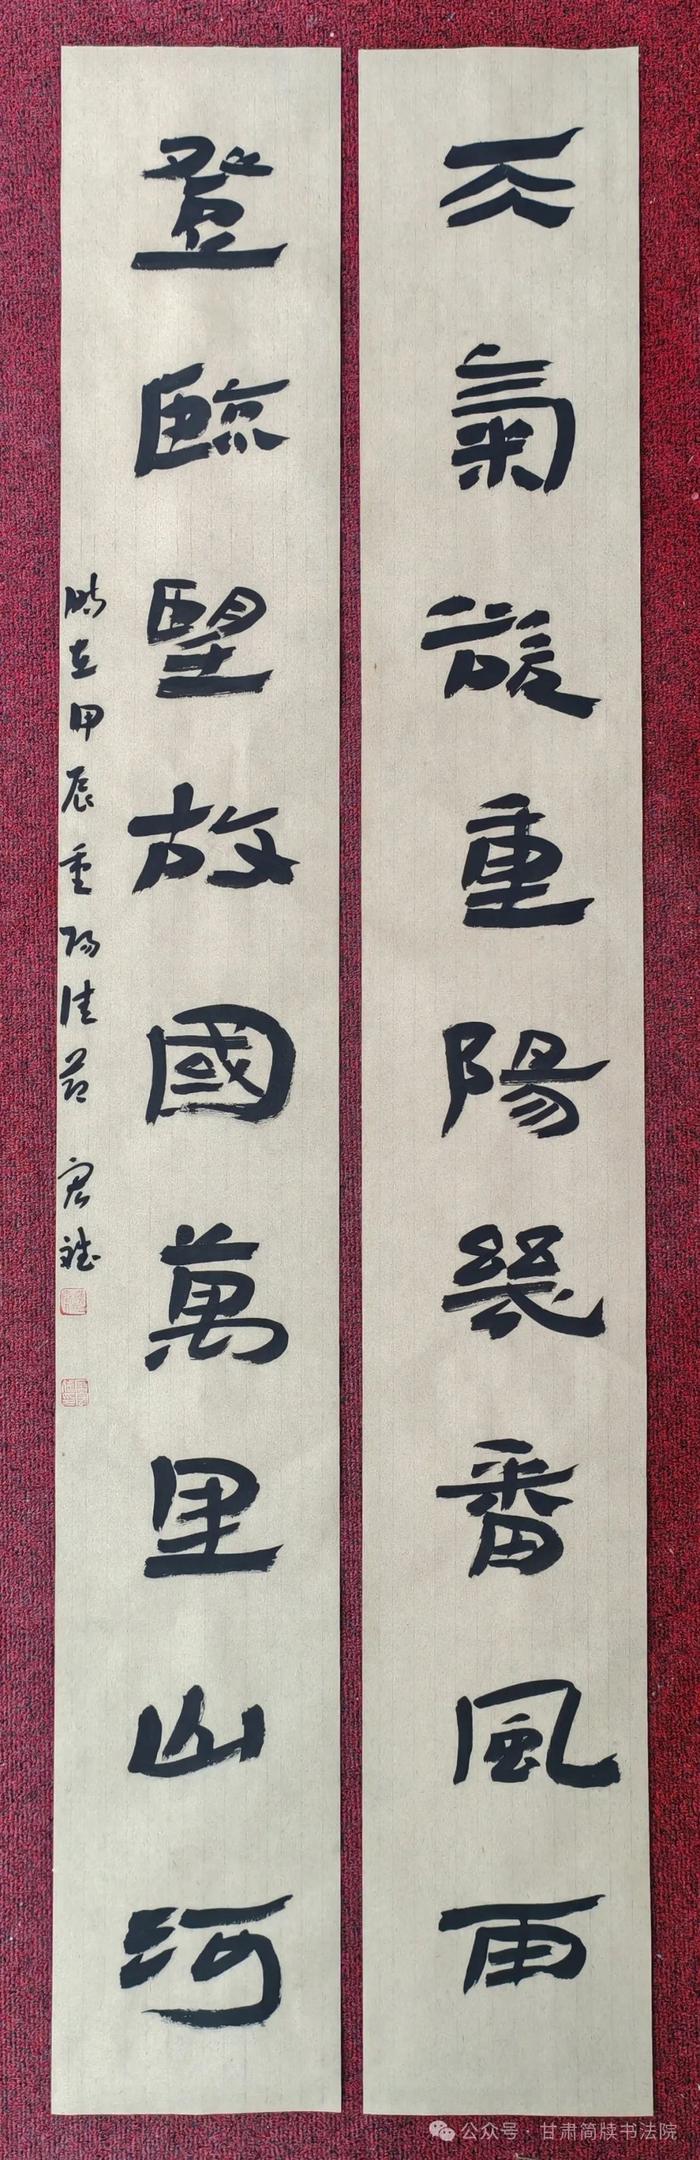 天氣重陽幾番風雨
登臨望故國萬里山河
時在甲辰重陽佳節 宏斌
公众号·甘肃简牍书法院